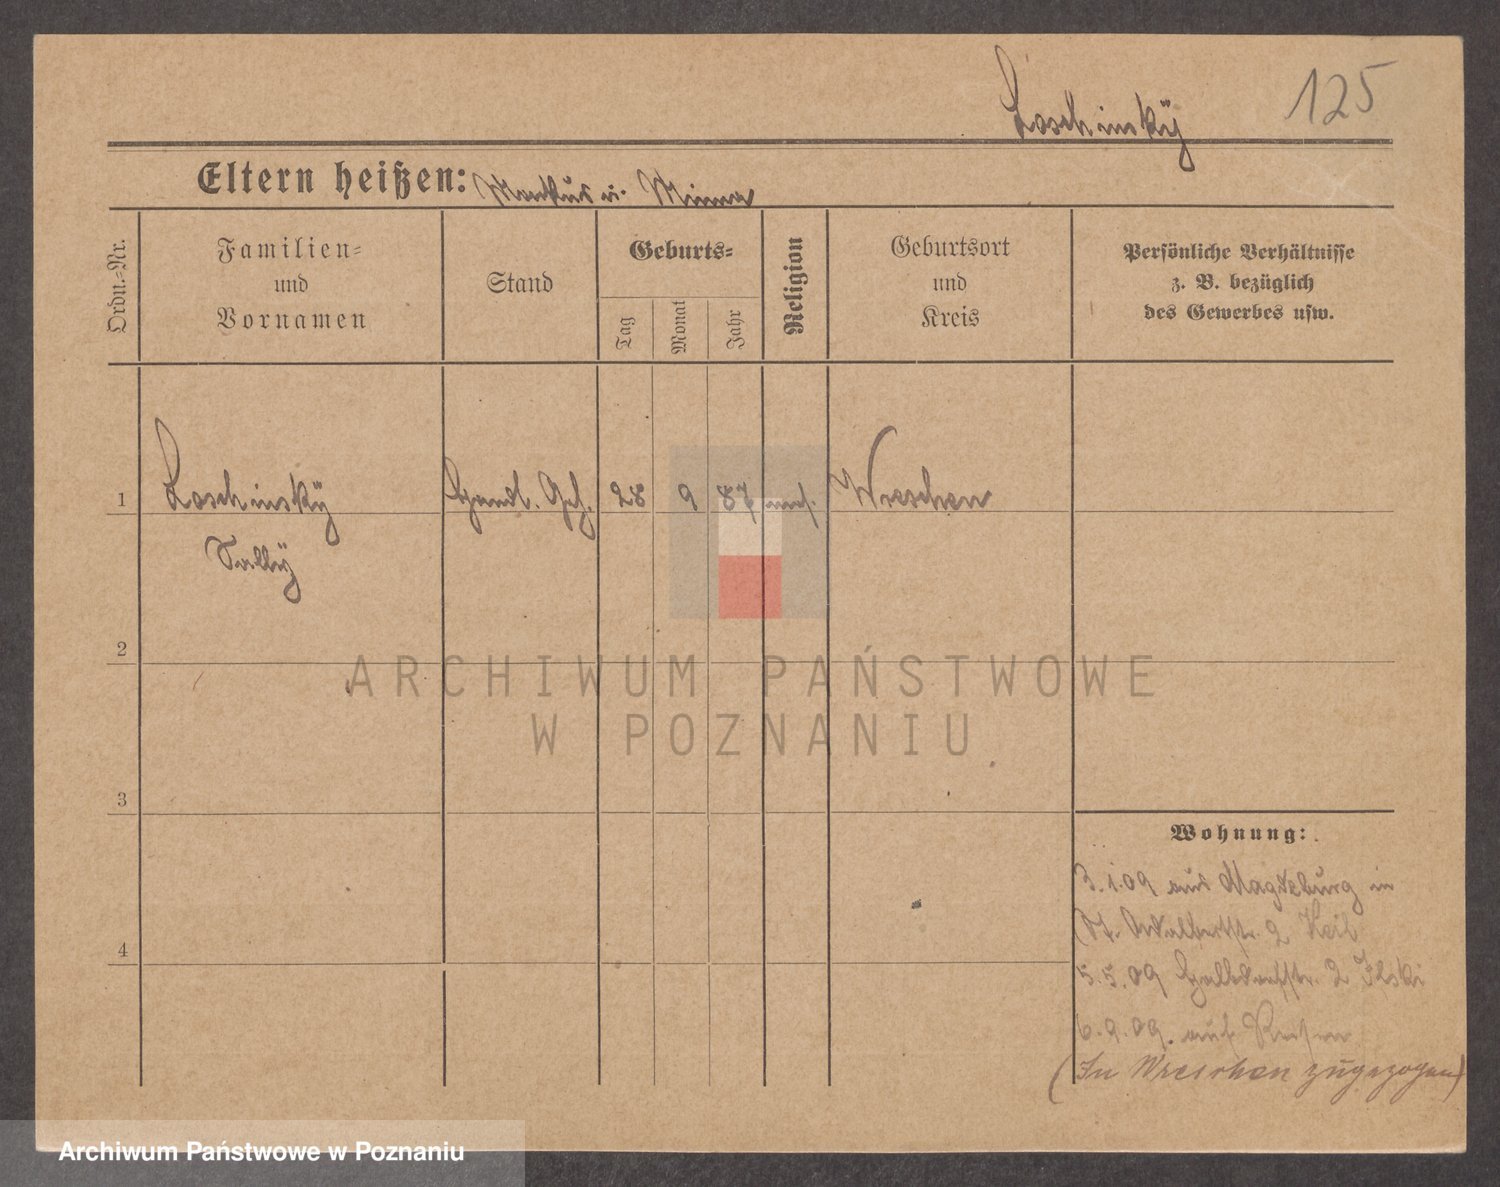 Loschinsky
125
Eltern heißen: Markus u. Minna
Ordn.-Nr.
Familien-
und
Vornamen
Stand
Geburts-
Tag
Monat
Jahr
Religion
Geburtsort
und
Kreis
Persönliche Verhältnisse
z. B. bezüglich
des Gewerbes usw.
1 Loschinsky Handl. Geh. 28 9 87 mos. Wreschen
Sally
2
3
4
Wohnung:
3.1.09 aus Magdeburg in
St. Adalbertstr. 2 Keil
5.5.09 Halbdorfstr. 2 Ilski
6.9.09. auf Reisen
(In Wreschen zugezogen)
ARCHIWUM PAŃSTWOWE
W POZNANIU
Archiwum Państwowe w Poznaniu